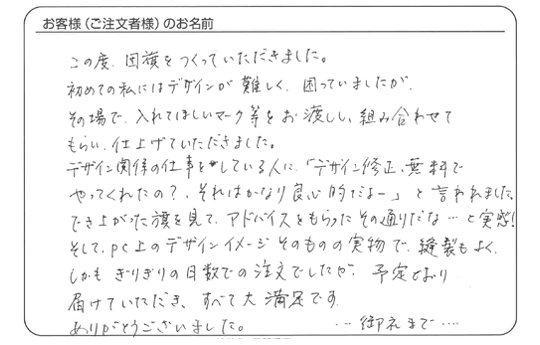 お客様（ご注文者様）のお名前
この度、団旗をつくっていただきました。
初めての私にはデザインが難しく、困っていましたが、
その場で、入れてほしいマーク等をお渡しし、組み合わせて
もらい、仕上げていただきました。
デザイン関係の仕事をしている人に、「デザイン修正、無料で
やってくれたの？、それはかなり良心的だよー」と言われました。
でき上がった旗を見て、アドバイスをもらったその通りだな…と実感！
そして、PC上のデザインイメージそのものの実物で、縫製もよく、
しかもぎりぎりの日数での注文でしたが、予定どおり
届けていただき、すべて大満足です。
ありがとうございました。 …御礼まで…